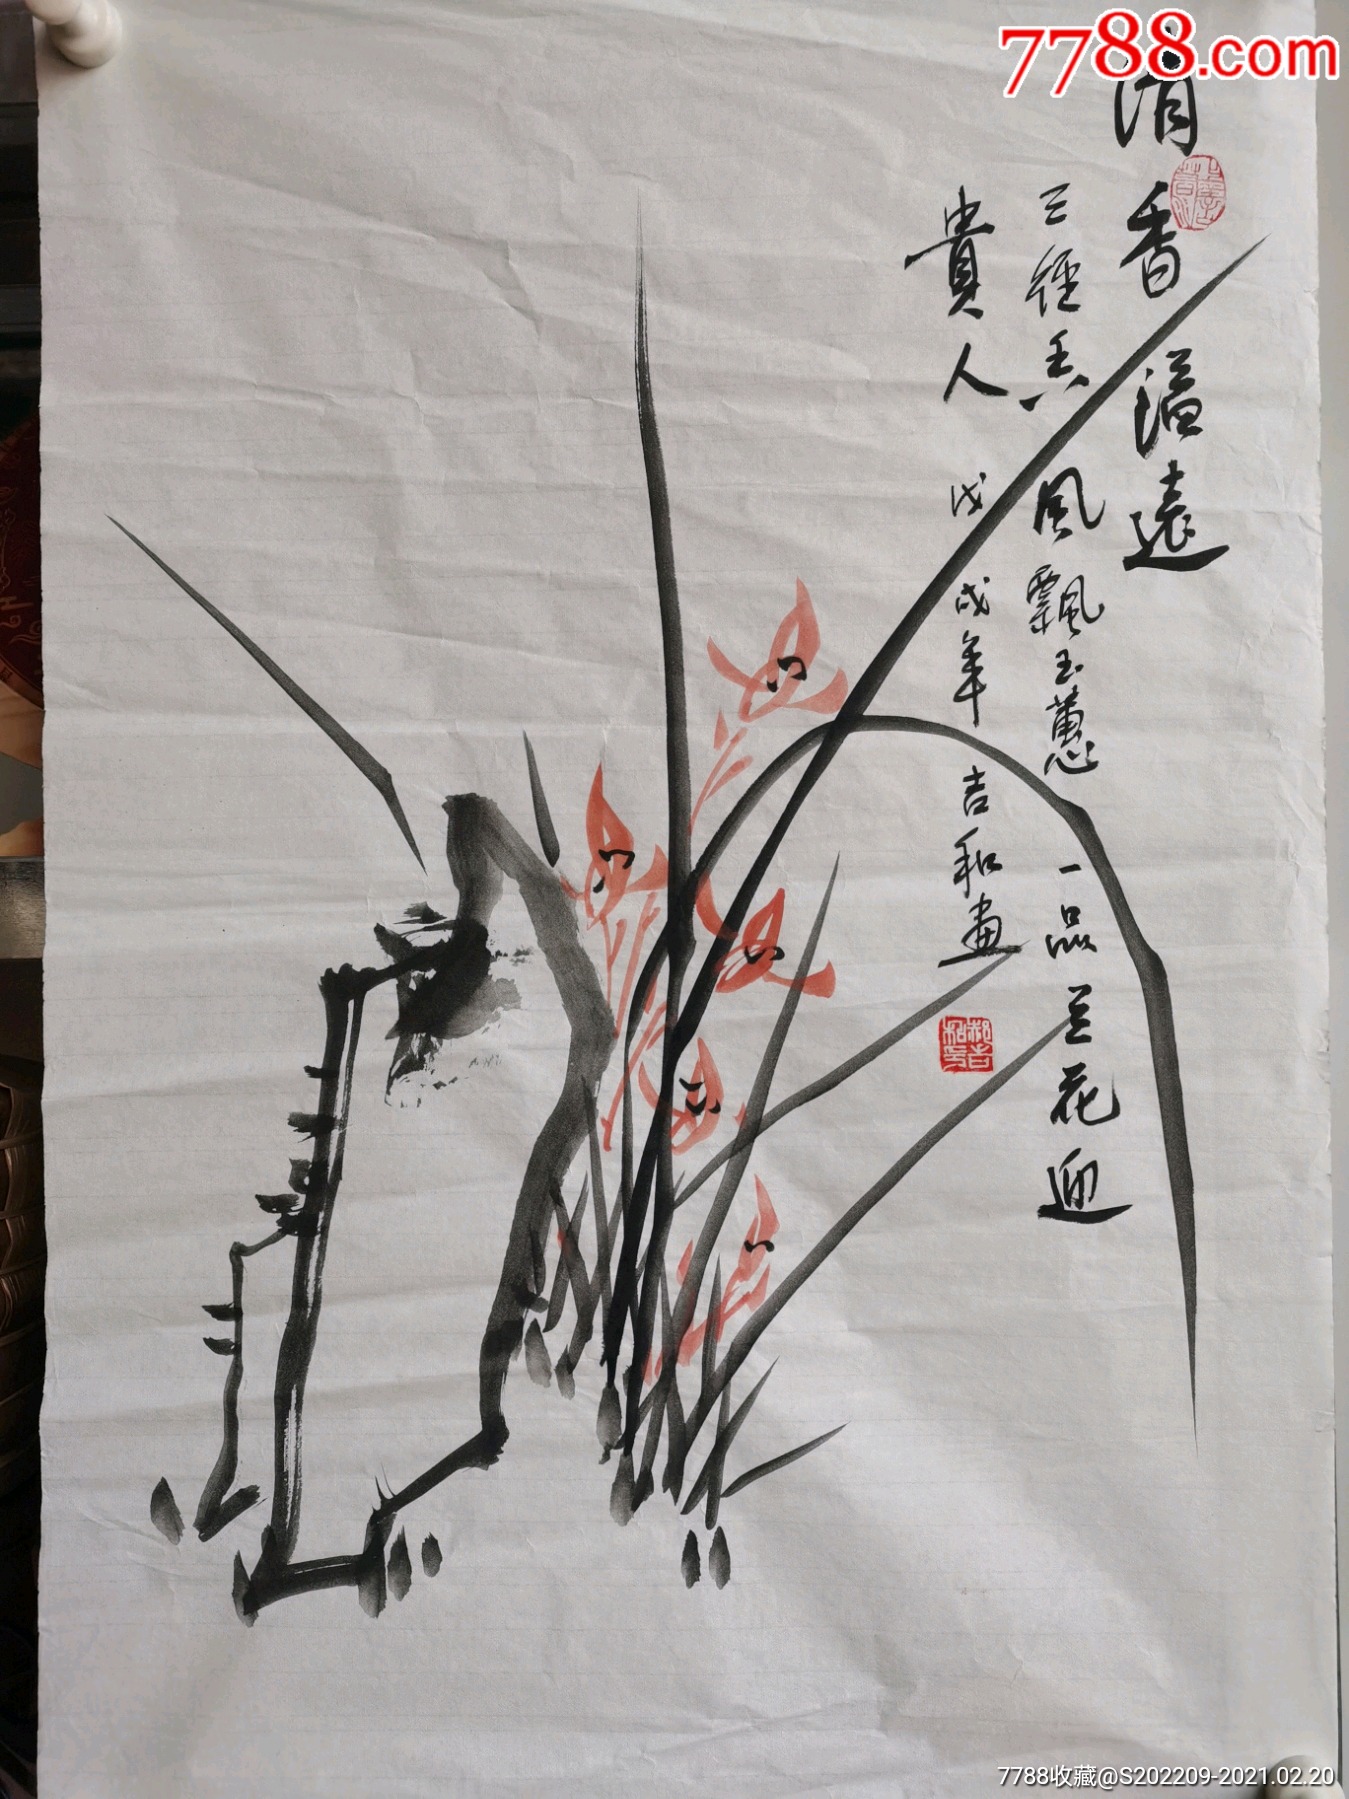 7788.com
清香溢遠
三徑香風飄玉蕙一品兰花迎
貴人 戊戌年 吉和画
郝吉和印
7788收藏@S202209-2021.02.20